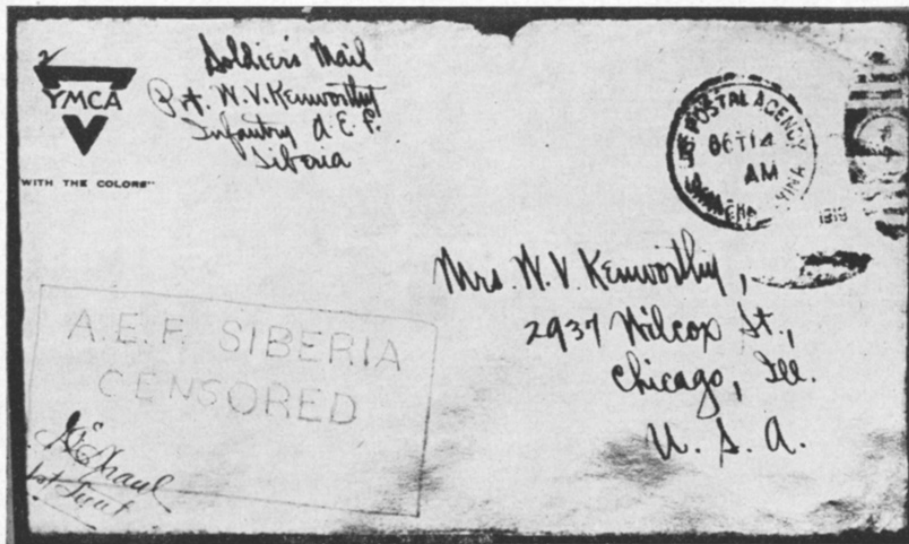 YMCA
WITH THE COLORS"
Soldier's Mail
Pvt. W. V. Kenworthy
Infantry A. E. F.
Siberia
POSTAL AGENCY
OCT 14
AM
1919
Mrs. W. V. Kenworthy,
2937 Wilcox St.,
Chicago, Ill.
U. S. A.
A.E.F. SIBERIA
CENSORED
1st Lieut